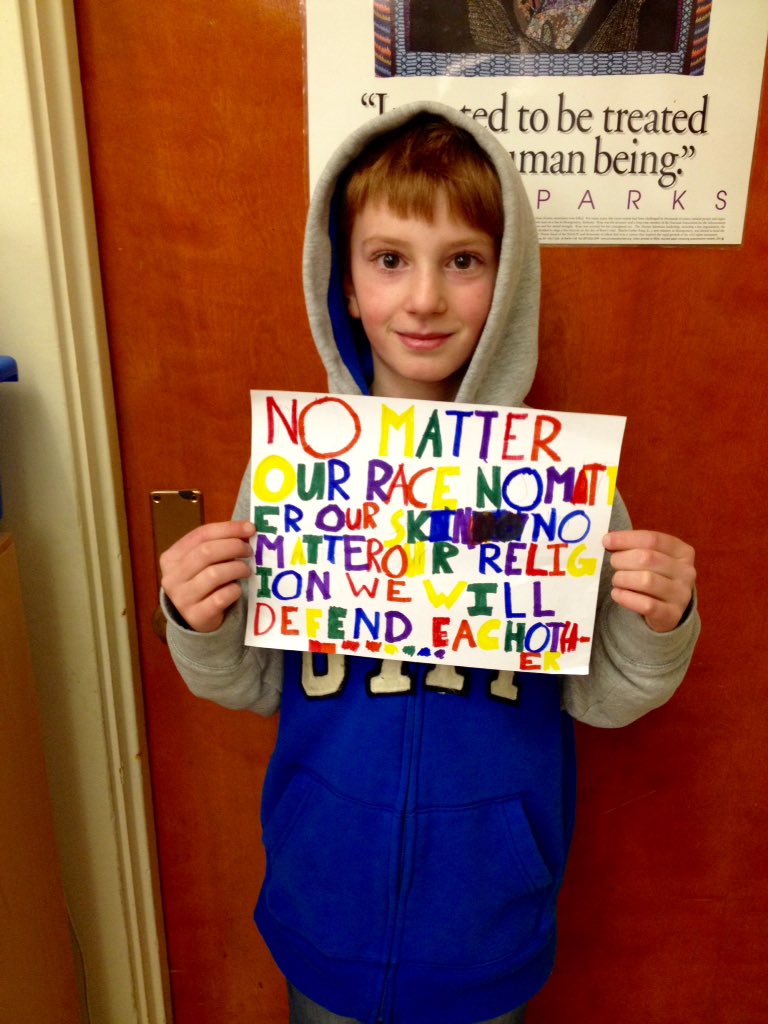 to be treated
being.”
PARKS
NO MATTER
OUR RACE NOMATT
ER OUR SKIN NO
MATTEROUR RELIG
ION WE WILL
DEFEND EACHOTH-
ER